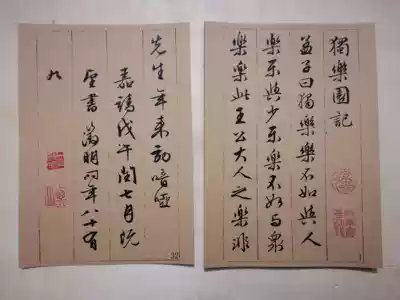 獨樂園記
孟子曰獨樂樂不如與人
樂樂與少樂樂不如与衆
樂樂此王公大人之樂非
先生年來
嘉靖戊午閏七月既
望書徵明時年八十有
九
32